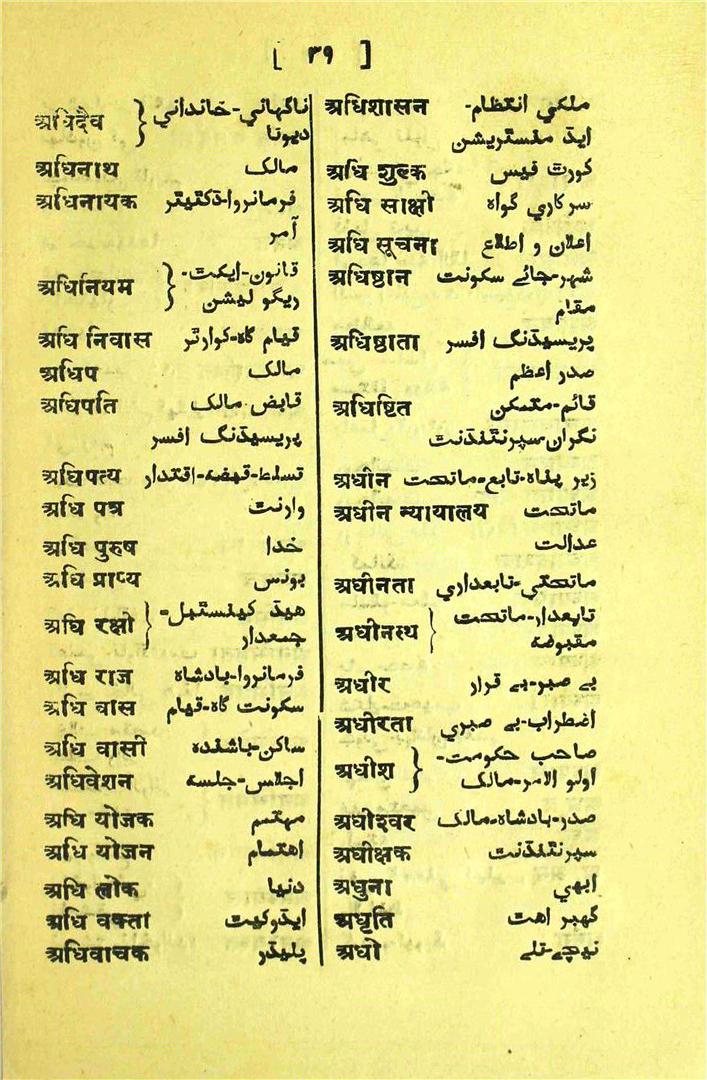 [ ۳۹ ]
अधिदैव } ناگهاني-خانداني
ديوتا
अधिनाथ مالک
अधिनायक فرمانروا-ڈکٹیٹر
آمر
अधिनियम } قانون-ایکٹ-
ریگو لیشن
अधि निवास قیام گاہ-کوارٹر
अधिप مالک
अधिपति قابض مالک
پریسیڈنگ افسر
अधिपत्य تسلط-قبضہ-اقتدار
अधि पत्र وارنٹ
अधि पुरुष خدا
अधि प्राप्य بونس
अधि रक्षी } هیڈ کینسٹبل-
جمعدار
अधि राज فرمانروا-بادشاہ
अधि वास سکونت گاہ-قیام
अधि वासी ساکن-باشندہ
अधिवेशन اجلاس-جلسہ
अधि योजक مہتمم
अधि योजन اهتمام
अधि लोक دنیا
अधि वक्ता ایڈوکیٹ
अधिवाचक پلیڈر
अधिशासन ملکي انتظام-
ایڈ منسٹریشن
अधि शुल्क کورٹ فیس
अधि साक्षी سرکاري گواہ
अधि सूचना اعلان و اطلاع
अधिष्ठान شہر-جائے سکونت
مقام
अधिष्ठाता پریسیڈنگ افسر
صدر اعظم
अधिष्टित قائم-متمکن
نگران-سپرنٹنڈنٹ
अधीन زیر پناہ-تابع-ماتحت
अधीन न्यायालय ماتحت
عدالت
अधीनता ماتحتي-تابعداري
अधीनस्थ } تابعدار-ماتحت
مقبوضہ
अधीर بے صبر-بے قرار
अधीरता اضطراب-بے صبري
अधीश } صاحب حکومت-
اولو الامر-مالک
अधीश्वर صدر-بادشاہ-مالک
अधीक्षक سپرنٹنڈنٹ
अधुना ابھي
अधृति گھبر اهٹ
अधो نیچے-تلے